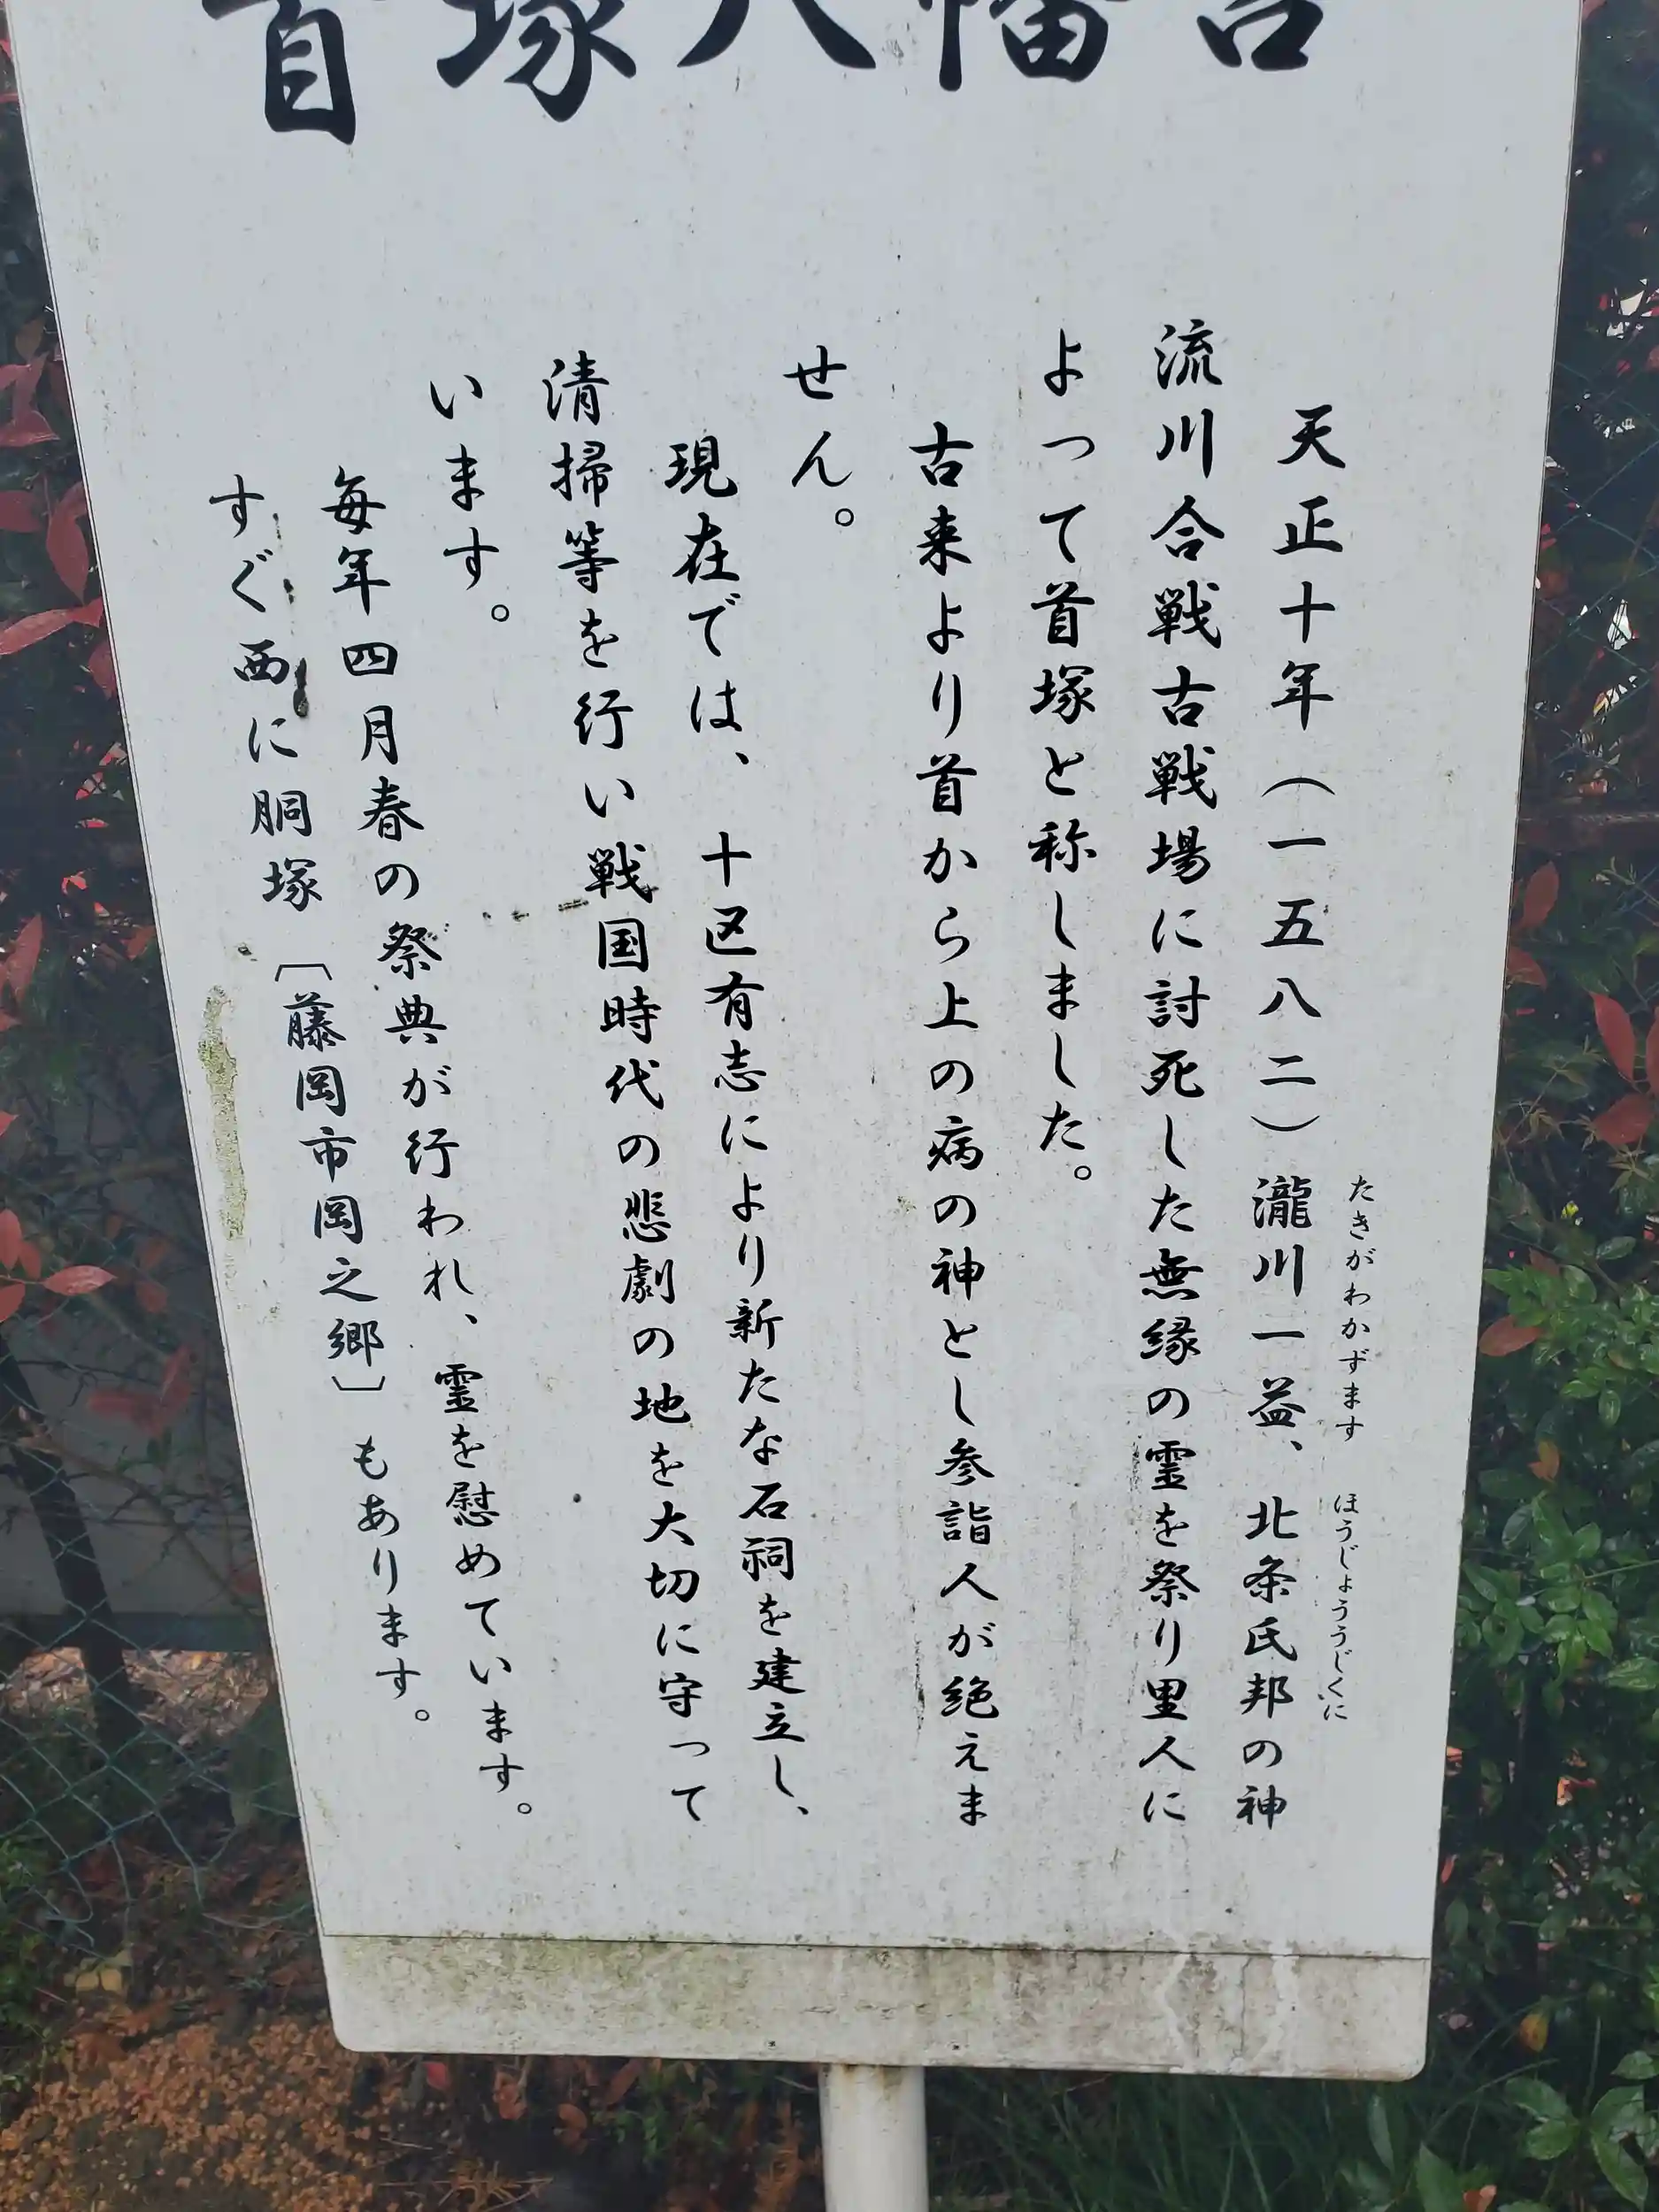 首塚八幡宮
天正十年(一五八二)瀧川一益、北条氏邦の神
たきがわかずます
ほうじょううじくに
流川合戦古戦場に討死した無縁の霊を祭り里人に
よって首塚と称しました。
古来より首から上の病の神とし参詣人が絶えま
せん。
現在では、十区有志により新たな石祠を建立し、
清掃等を行い戦国時代の悲劇の地を大切に守って
います。
毎年四月春の祭典が行われ、霊を慰めています。
すぐ西に胴塚〔藤岡市岡之郷〕もあります。